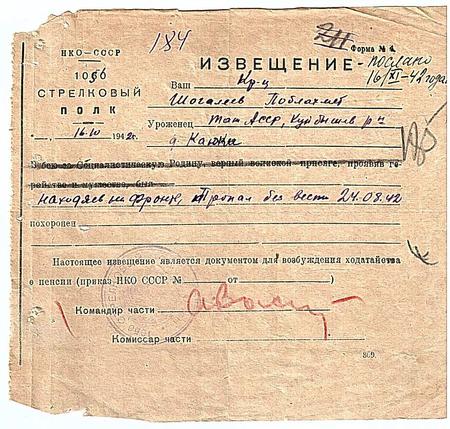 184
211
НКО—СССР
Форма № 4
1066
СТРЕЛКОВЫЙ
ПОЛК
16.10 1942г.
ИЗВЕЩЕНИЕ - послано
16/XI-42 года
Ваш Кр-ц
Уроженец Тат АССР, Куйбышев р-н
В бою за Социалистическую Родину, верный воинской присяге, проявив ге-
ройство и мужество, был
находясь на фронте, пропал без вести 24.08.42
похоронен
Настоящее извещение является документом для возбуждения ходатайства
о пенсии (приказ НКО СССР № от )
Командир части
Комиссар части